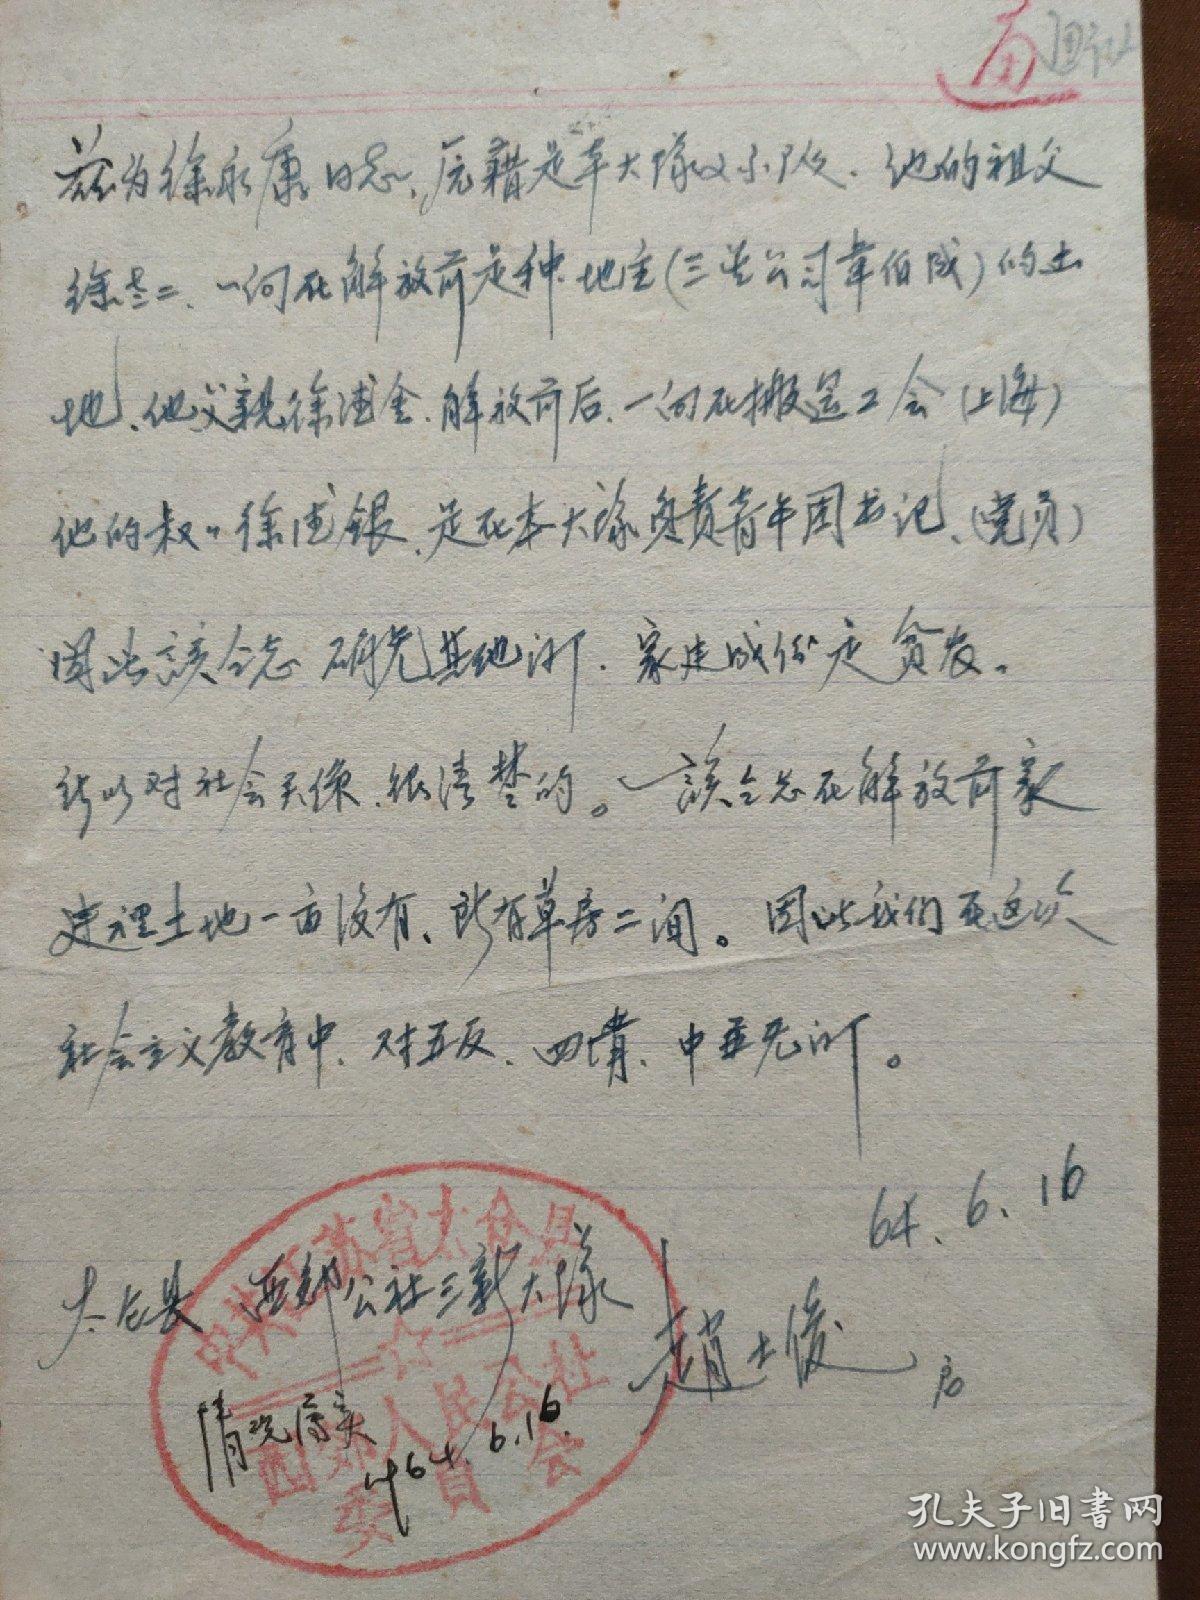 兹为徐永康同志、原籍是本大队12小队. 他的祖父
徐老二、一向在解放前是种地主(三益公司韋伯成)的土
地、他父亲徐浦金.解放前后.一向在搬運工会(上海)
他的叔〃徐浦銀.是在本大隊負責青年团书记、(党员)
因此該仝志 研究其他. 家庭成份是贫农。
所以对社会关係.很清楚的。該仝志在解放前家
庭裡土地一亩没有、所有草房二间。因此我们在这次
社会主义教育中、对五反、四清、中並无。
64.6.16
太仓县 西郊公社三新大隊 趙士俊
情况属实
64.6.16.
中共江苏省太仓县
西郊人民公社
委員会
孔夫子旧书网
www.kongfz.com